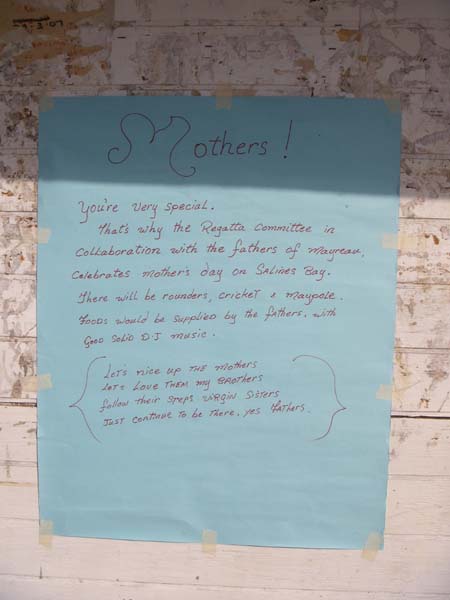 -9.3.07
Mothers!
You're very special.
That's why the Regatta Committee in
Collaboration with the fathers of Mayreau,
Celebrates mother's day on Salines Bay.
There will be rounders, cricket & maypole.
Foods would be supplied by the fathers. with
Good Solid D.J music.
Let's nice up THE Mothers
Let's Love THEM my BROTHERS
follow their steps virgin Sisters
Just continue to be there. yes fathers.